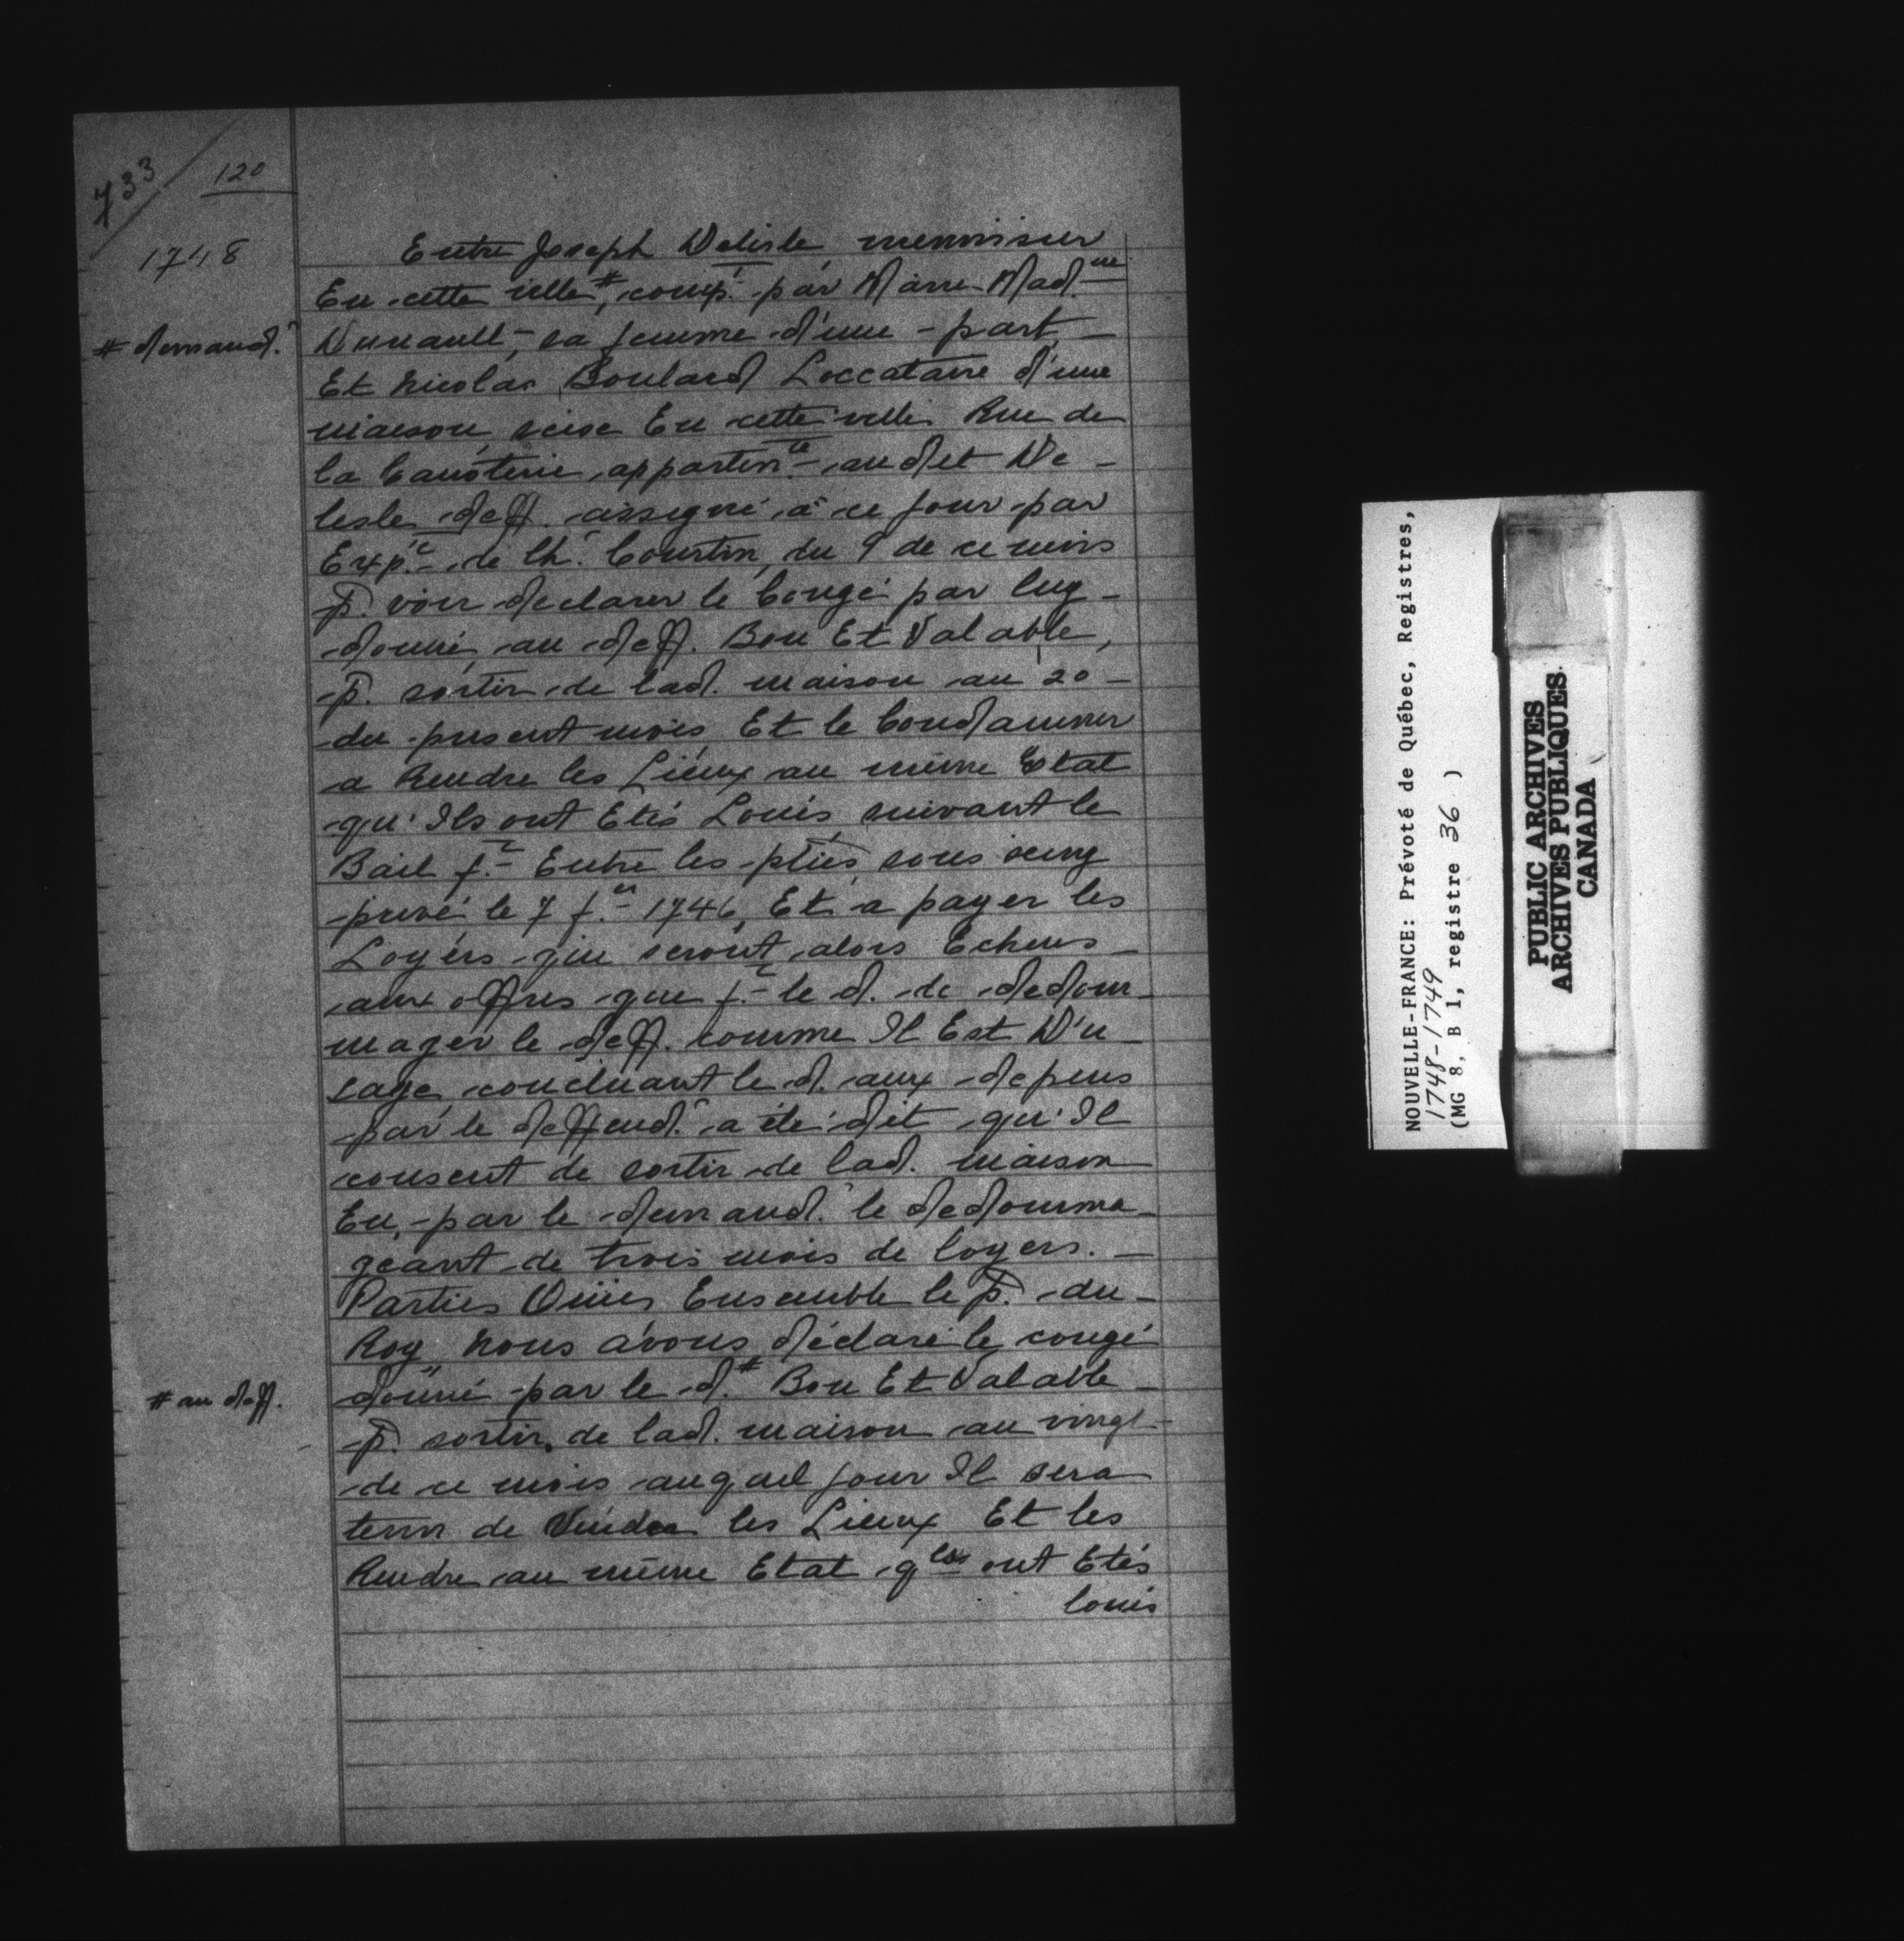 733
120
1748
Entre Joseph Delisle menuisier
En cette ville #, comp.t par Marie Mad.ne
# demand.r
Dunault, sa femme d'une part
Et Nicolas Boulard Loccataire d'une
maison scise En cette ville Rue de
la Canoterie, apparten.te au dit De-
lesle deff. assigné à ce jour par
Exp.t de Ch. Courtin, du 9 de ce mois
p. voir declarer le Congé par luy
donné au deff. Bon Et Valable,
p. sortir de lad. maison au 20
du present mois Et le Condamner
a Rendre les Lieux au même Etat
qu'Ils ont Etés Loués suivant le
Bail f.t Entre les pties sous seing
privé le 7 f.er 1746, Et a payer les
Loyers qui seront alors Echeus
aux offres que f.t le d. de dedom-
mager le deff. comme Il Est D'u-
sage concluant le d. aux depens
par le deffend.r a été dit qu'Il
consent de sortir de lad. maison
En, par le demand.r le dedomma-
geant de trois mois de loyers.
Parties Ouies Ensemble le p. du
Roy Nous avons déclaré le congé
# au deff.
donné par le d. # Bon Et Valable
p. sortir de lad. maison au vingt
de ce mois auquel jour Il sera
tenu de Vuider les Lieux Et les
Rendre au même Etat qls ont Etés
loués
NOUVELLE-FRANCE: Prévoté de Québec, Registres,
1748-1749
(MG 8, B 1, registre 36 )
PUBLIC ARCHIVES
ARCHIVES PUBLIQUES
CANADA